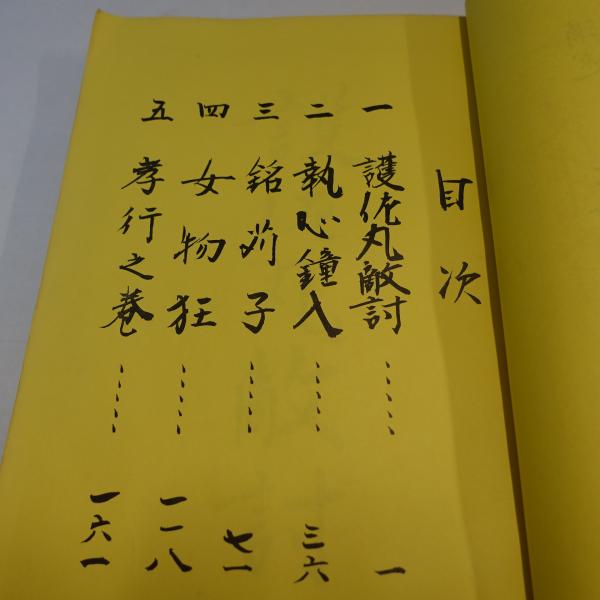 目次
一 護佐丸敵討 ..... 一
二 執心鐘入 ..... 三六
三 銘苅子 ..... 七一
四 女物狂 ..... 一一八
五 孝行之巻 ..... 一六一